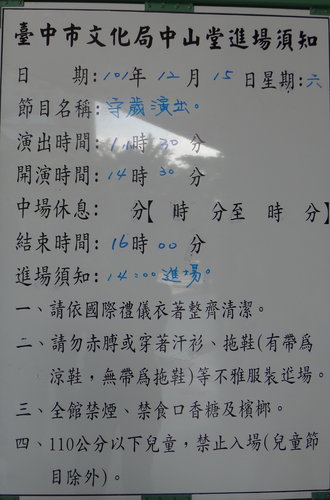 臺中市文化局中山堂進場須知
日　期:101年 12月 15日星期:六
節目名稱:守歲演出。
演出時間:14時30分
開演時間:14時30分
中場休息:　分【　時　分至　時　分
結束時間:16時00分
進場須知:14:00進場。
一、請依國際禮儀衣著整齊清潔。
二、請勿赤膊或穿著汗衫、拖鞋(有帶為
涼鞋，無帶為拖鞋)等不雅服裝進場。
三、全館禁煙、禁食口香糖及檳榔。
四、110公分以下兒童，禁止入場(兒童節
目除外)。